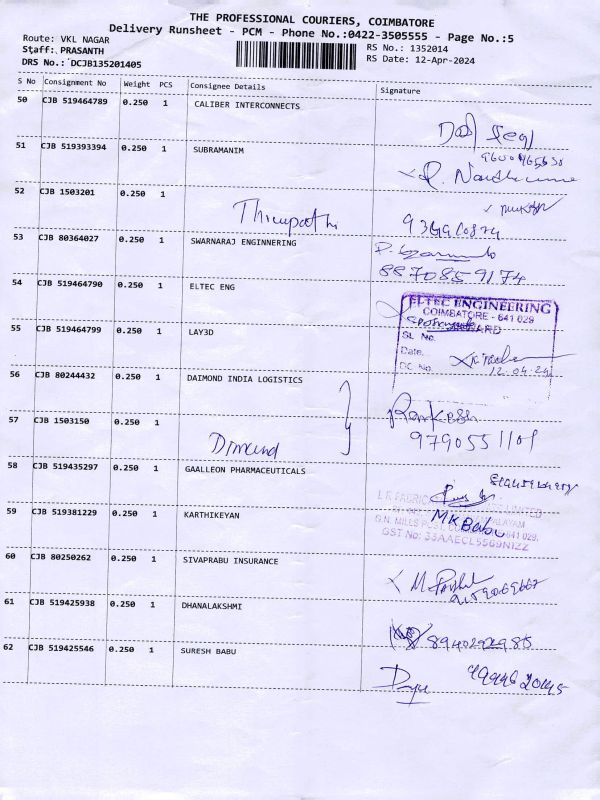 THE PROFESSIONAL COURIERS, COIMBATORE
Delivery Runsheet - PCM - Phone No.:0422-3505555 - Page No.:5
Route: VKL NAGAR
Staff: PRASANTH
RS No.: 1352014
DRS No.: DCJB135201405
RS Date: 12-Apr-2024
S No Consignment No Weight PCS Consignee Details Signature
50 CJB 519464789 0.250 1 CALIBER INTERCONNECTS
51 CJB 519393394 0.250 1 SUBRAMANIM
52 CJB 1503201 0.250 1
Thirupathi
53 CJB 80364027 0.250 1 SWARNARAJ ENGINNERING
8870859174
54 CJB 519464790 0.250 1 ELTEC ENG
ELTEC ENGINEERING
COIMBATORE - 641 029
SL No.
Date.
DC No.
12.04.24
55 CJB 519464799 0.250 1 LAY3D
56 CJB 80244432 0.250 1 DAIMOND INDIA LOGISTICS
57 CJB 1503150 0.250 1
9790551101
Dimond
58 CJB 519435297 0.250 1 GAALLEON PHARMACEUTICALS
59 CJB 519381229 0.250 1 KARTHIKEYAN
MK Babu
GST No: 33AAECL5569N1ZZ
60 CJB 80250262 0.250 1 SIVAPRABU INSURANCE
61 CJB 519425938 0.250 1 DHANALAKSHMI
8940292985
62 CJB 519425546 0.250 1 SURESH BABU